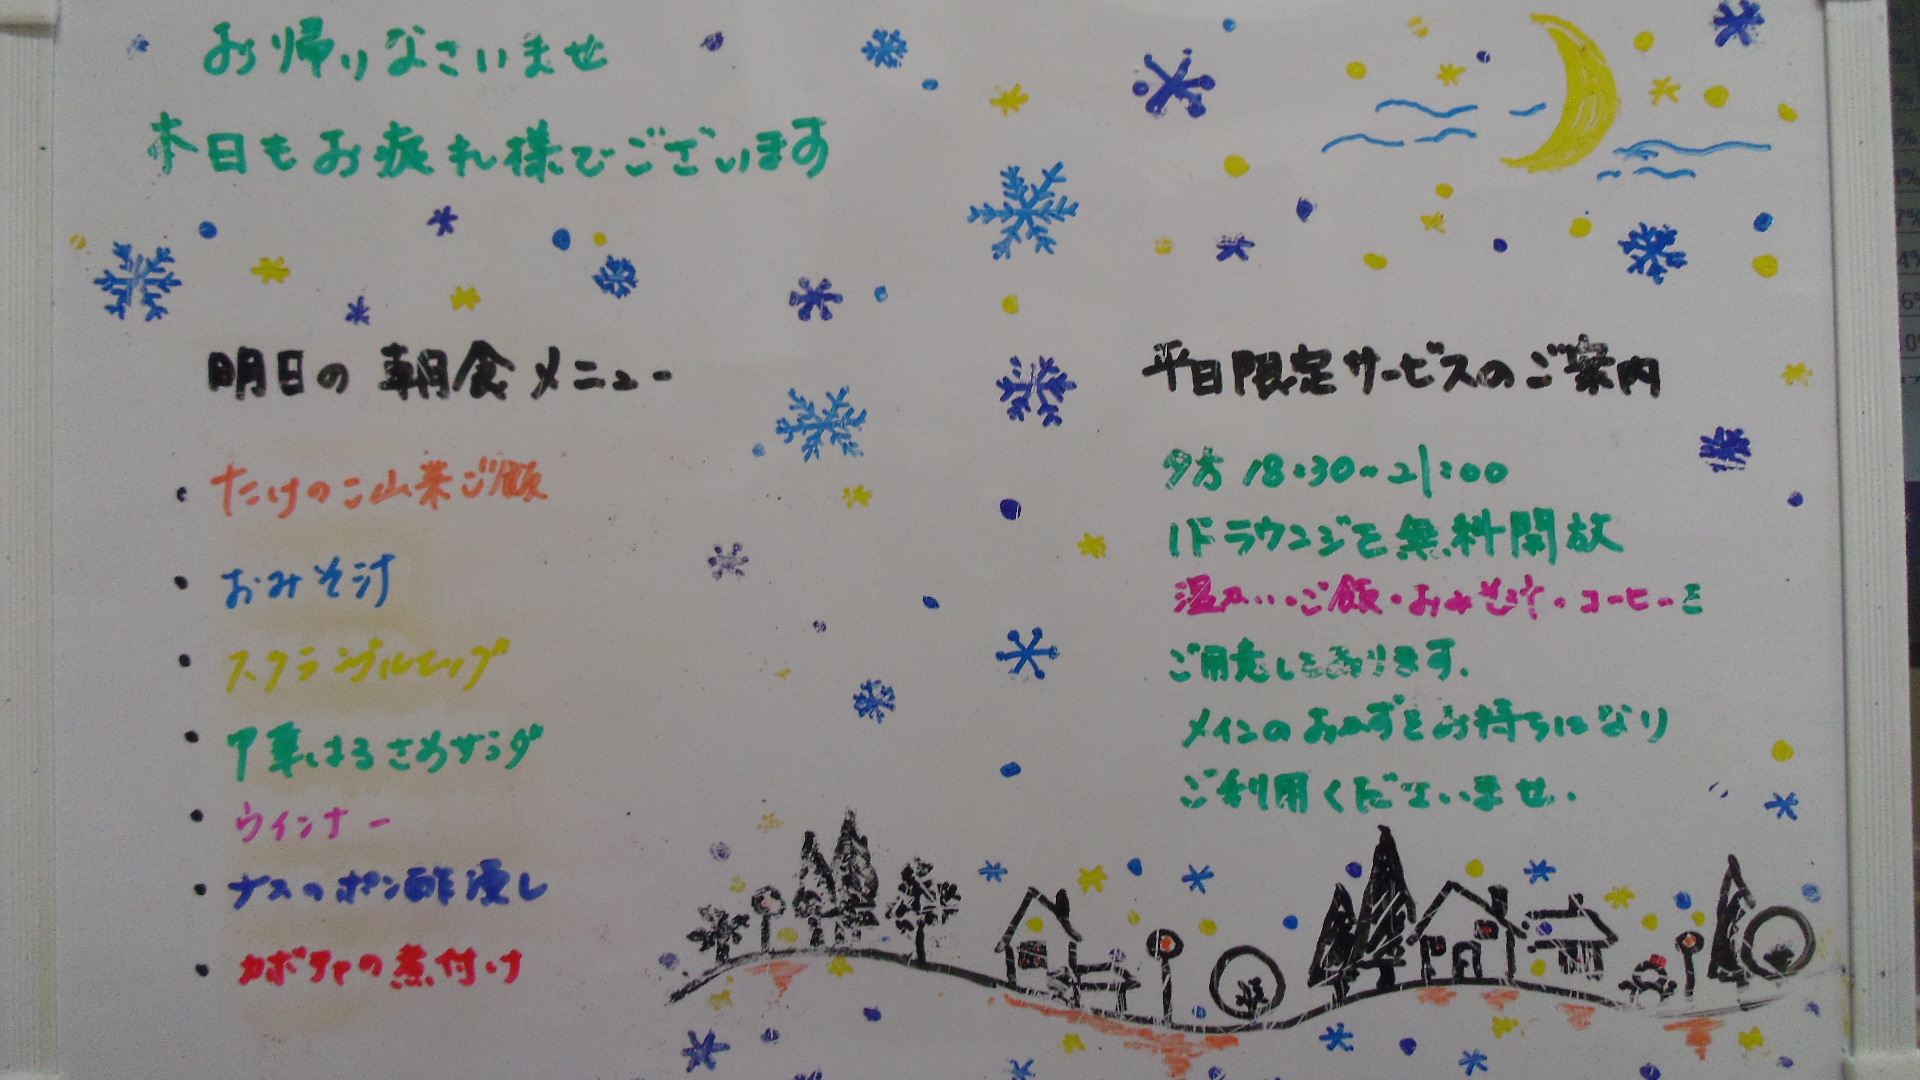 お帰りなさいませ
本日もお疲れ様でございます
明日の朝食メニュー
・たけのこ山菜ご飯
・おみそ汁
・スクランブルエッグ
・中華はるさめサラダ
・ウインナー
・ナスのポン酢浸し
・カボチャの煮付け
平日限定サービスのご案内
夕方 18:30~21:00
1Fラウンジを無料開放
温かいご飯・おみそ汁・コーヒーを
ご用意しております。
メインのおかずをお持ちになり
ご利用くださいませ.